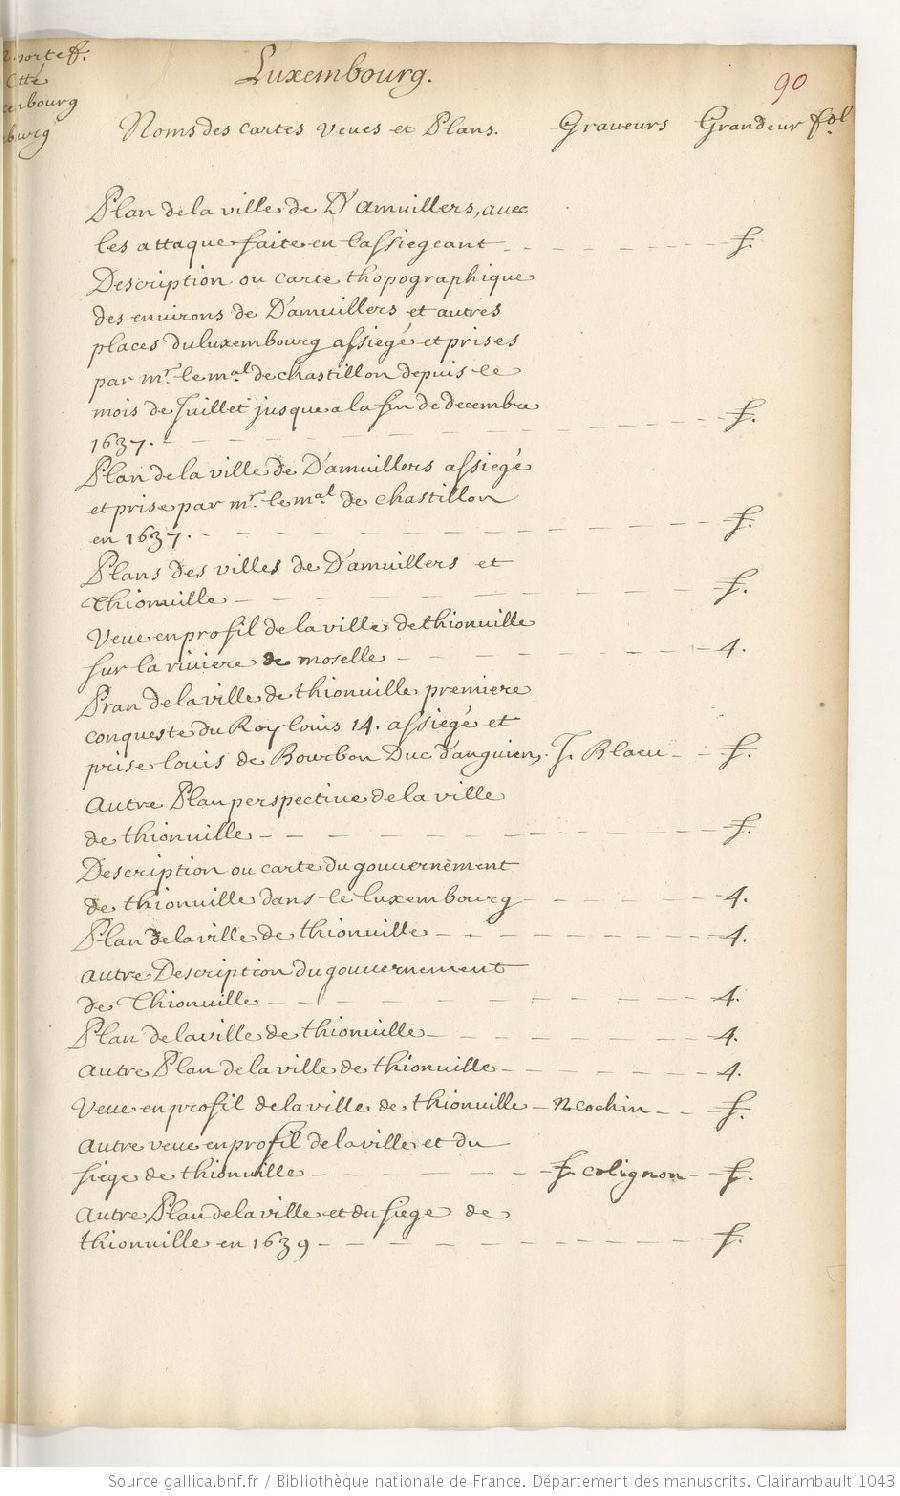 Luxembourg.
90
portef.
Cté
embourg
bourg
Noms des cartes veues et Plans. Graveurs Grandeur fol
Plan de la ville de D'amuillers, avec
les attaque faite en l'assiegeant f.
Description ou carte thopographique
des enuirons de D'amuillers et autres
places du luxembourg assiegé et prises
par mr. le mal. de chastillon depuis le
mois de Juillet jusque a la fin de decembre
1637. f.
Plan de la ville de D'amuillers assiegé
et prise par mr. le mal. de chastillon
en 1637. f.
Plans des villes de D'amuillers et
Thionuille f.
Veue en profil de la ville de thionuille
sur la riuiere de moselle 4.
Plan de la ville de thionuille premiere
conqueste du Roy louis 14. assiegé et
prise louis de Bourbon Duc d'anguien, J. Blaeu f.
autre Plan perspectiue de la ville
de thionuille f.
Description ou carte du gouuernement
de thionuille dans le luxembourg 4.
Plan de la ville de thionuille 4.
autre Description du gouuernement
de Thionuille 4.
Plan de la ville de thionuille 4.
autre Plan de la ville de thionuille 4.
Veue en profil de la ville de thionuille N cochin f.
autre veue en profil de la ville et du
siege de thionuille f. colignon f.
autre Plan de la ville et du siege de
thionuille en 1639 f.
Source gallica.bnf.fr / Bibliothèque nationale de France. Département des manuscrits. Clairambault 1043